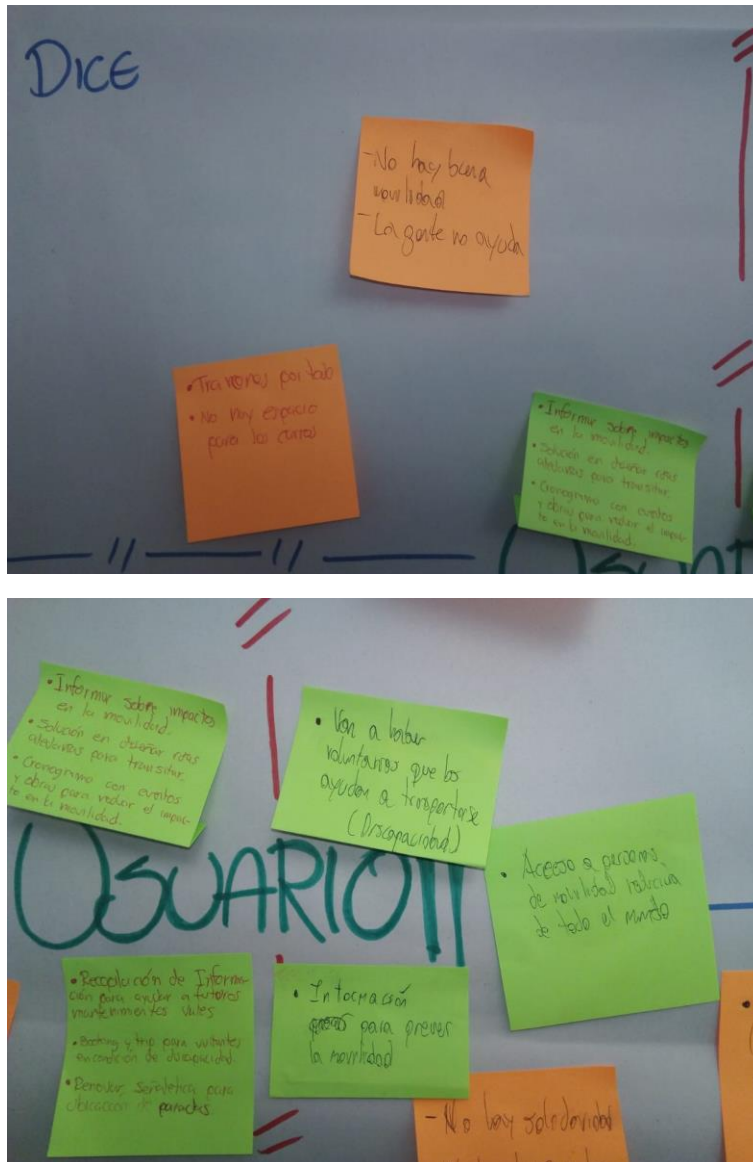 DICE
- No hay buena
movilidad
- La gente no ayuda
por todo
• No hay espacio
para los carros
• Informar sobre impactos
en la movilidad.
• Solución en diseñar rutas
para transitar.
• Cronograma con eventos
y obras para reducir el impac-
to en la movilidad.
• Informar sobre impactos
en la movilidad.
• Solución en diseñar rutas
para transitar.
• Cronograma con eventos
y obras para reducir el impac-
to en la movilidad.
• Van a haber
voluntarios que los
ayudan a transportarse
(Discapacidad)
USUARIO
• Acceso a personas
de movilidad
de todo el mundo
• Recopilación de Informa-
ción para ayudar a futuros
mantenimientos viales
• Booking y trip para visitantes
en condición de discapacidad.
• Renovar señalética para
ubicación de paradas.
• Información
para prever
la movilidad
- No hay